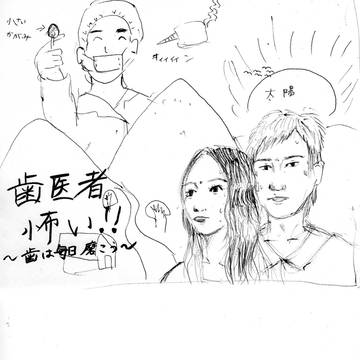 小さい
かがみ
ギィィイイン
太陽
歯医者
怖い!!
〜歯は毎日磨こう〜